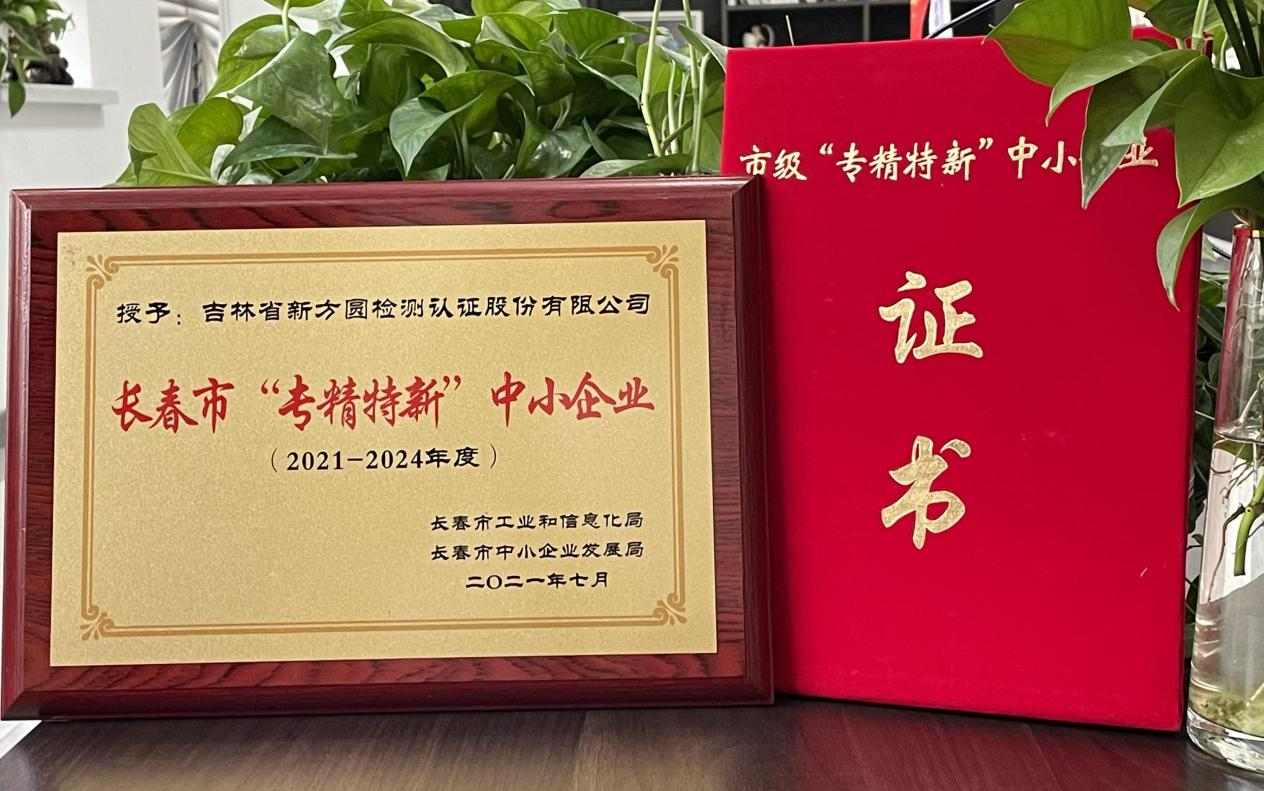 授予：吉林省新方圆检测认证股份有限公司
长春市“专精特新”中小企业
（2021-2024年度）
长春市工业和信息化局
长春市中小企业发展局
二〇二一年七月
市级“专精特新”中小业
证
书